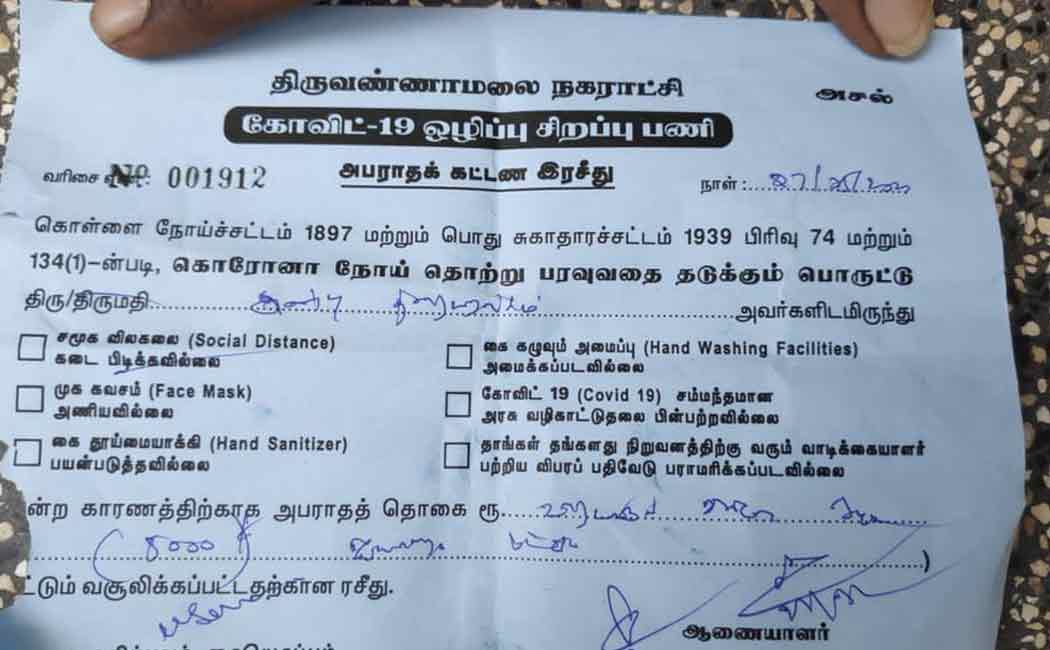 திருவண்ணாமலை நகராட்சி
அசல்
கோவிட்-19 ஒழிப்பு சிறப்பு பணி
வரிசை எண்: № 001912
அபராதக் கட்டண இரசீது
நாள் :
கொள்ளை நோய்ச்சட்டம் 1897 மற்றும் பொது சுகாதாரச்சட்டம் 1939 பிரிவு 74 மற்றும்
134(1)-ன்படி, கொரோனா நோய் தொற்று பரவுவதை தடுக்கும் பொருட்டு
திரு/திருமதி அவர்களிடமிருந்து
சமூக விலகலை (Social Distance)
கடை பிடிக்கவில்லை
கை கழுவும் அமைப்பு (Hand Washing Facilities)
அமைக்கப்படவில்லை
முக கவசம் (Face Mask)
அணியவில்லை
கோவிட் 19 (Covid 19) சம்மந்தமான
அரசு வழிகாட்டுதலை பின்பற்றவில்லை
கை தூய்மையாக்கி (Hand Sanitizer)
பயன்படுத்தவில்லை
தாங்கள் தங்களது நிறுவனத்திற்கு வரும் வாடிக்கையாளர்
பற்றிய விபரப் பதிவேடு பராமரிக்கப்படவில்லை
ன்ற காரணத்திற்காக அபராதத் தொகை ரூ.
(5000 )
ட்டும் வசூலிக்கப்பட்டதற்கான ரசீது.
ஆணையாளர்